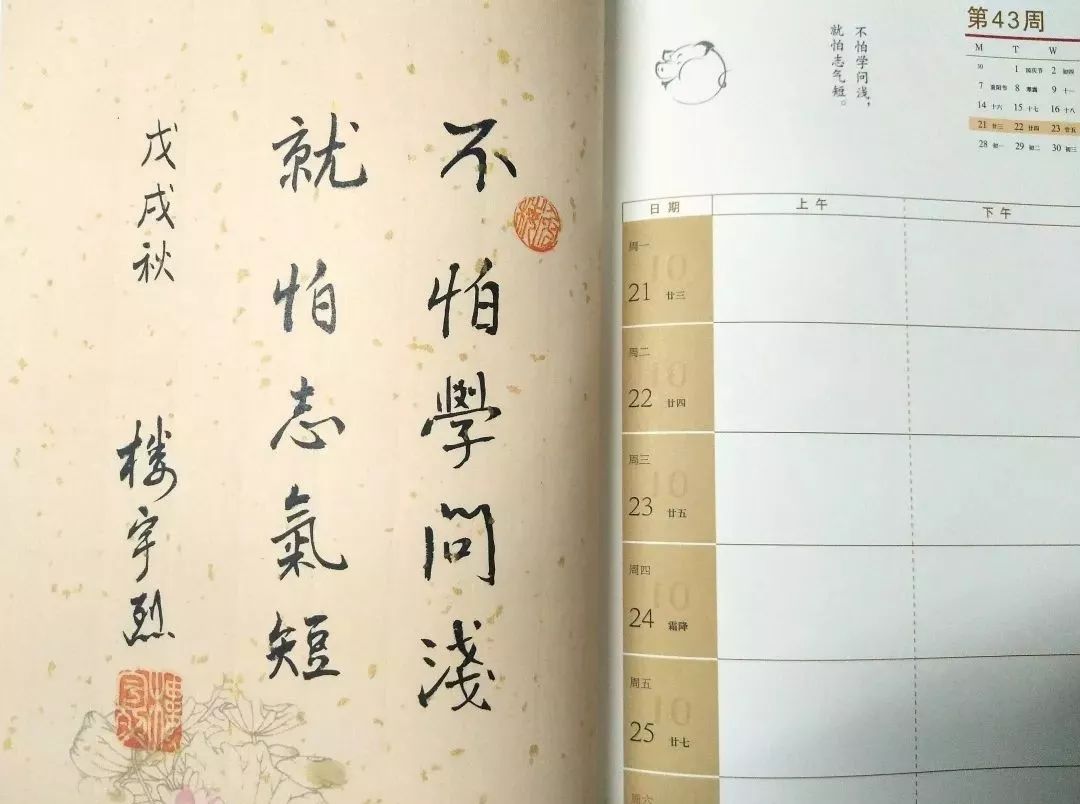 不怕學問淺
就怕志氣短
戊戌秋
楼宇烈
不怕学问浅，
就怕志气短。
第43周
M T W
10 1 国庆节 2 初四
7 重阳节 8 寒露 9 十一
14 十六 15 十七 16 十八
21 廿三 22 廿四 23 廿五
28 初一 29 初二 30 初三
日期 上午 下午
周一
21 廿三
周二
22 廿四
周三
23 廿五
周四
24 霜降
周五
25 廿七
周六